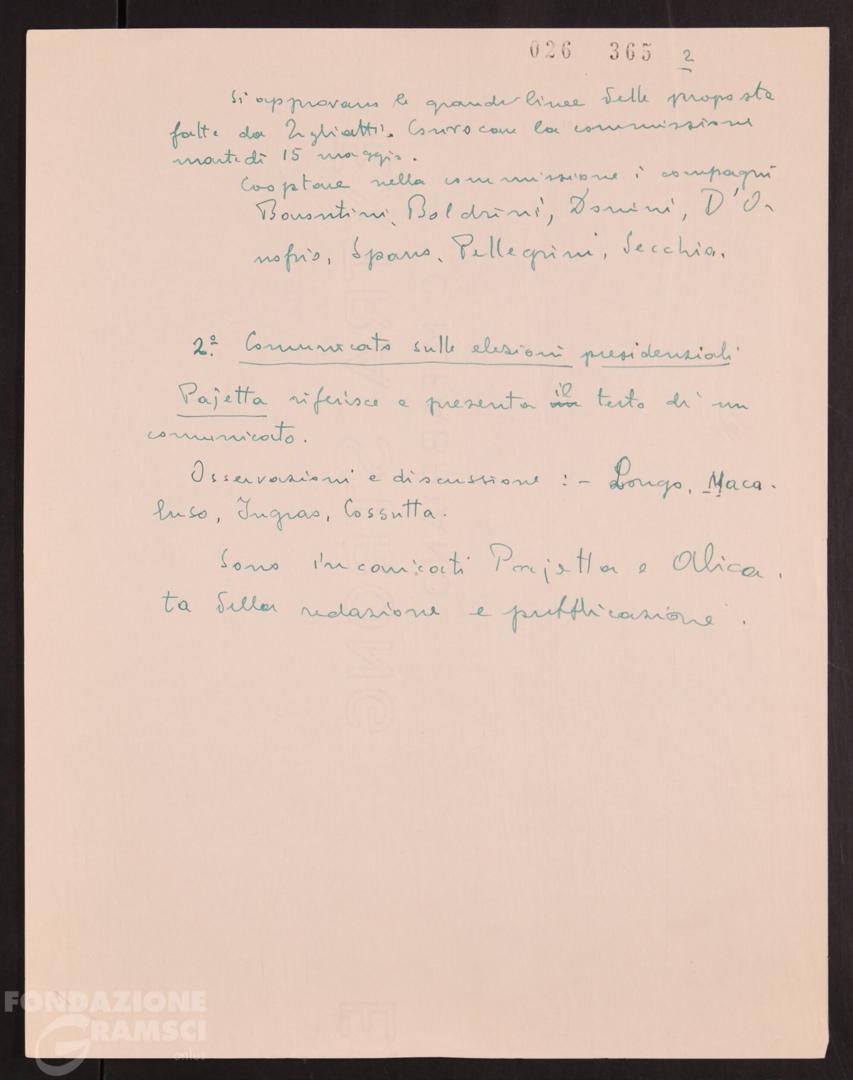 026 365 2
Si approvano le grandi linee delle proposte
fatte da Togliatti. Convocare la commissione
martedì 15 maggio.
Cooptare nella commissione i compagni
Barontini, Boldrini, Donini, D'O-
nofrio, Spano, Pellegrini, Secchia.
2º. Comunicato sulle elezioni presidenziali
Pajetta riferisce e presenta il testo di un
comunicato.
Osservazioni e discussione : - Longo, Maca-
luso, Ingrao, Cossutta.
Sono incaricati Pajetta e Alica-
ta della redazione e pubblicazione.
FONDAZIONE
GRAMSCI
onlus